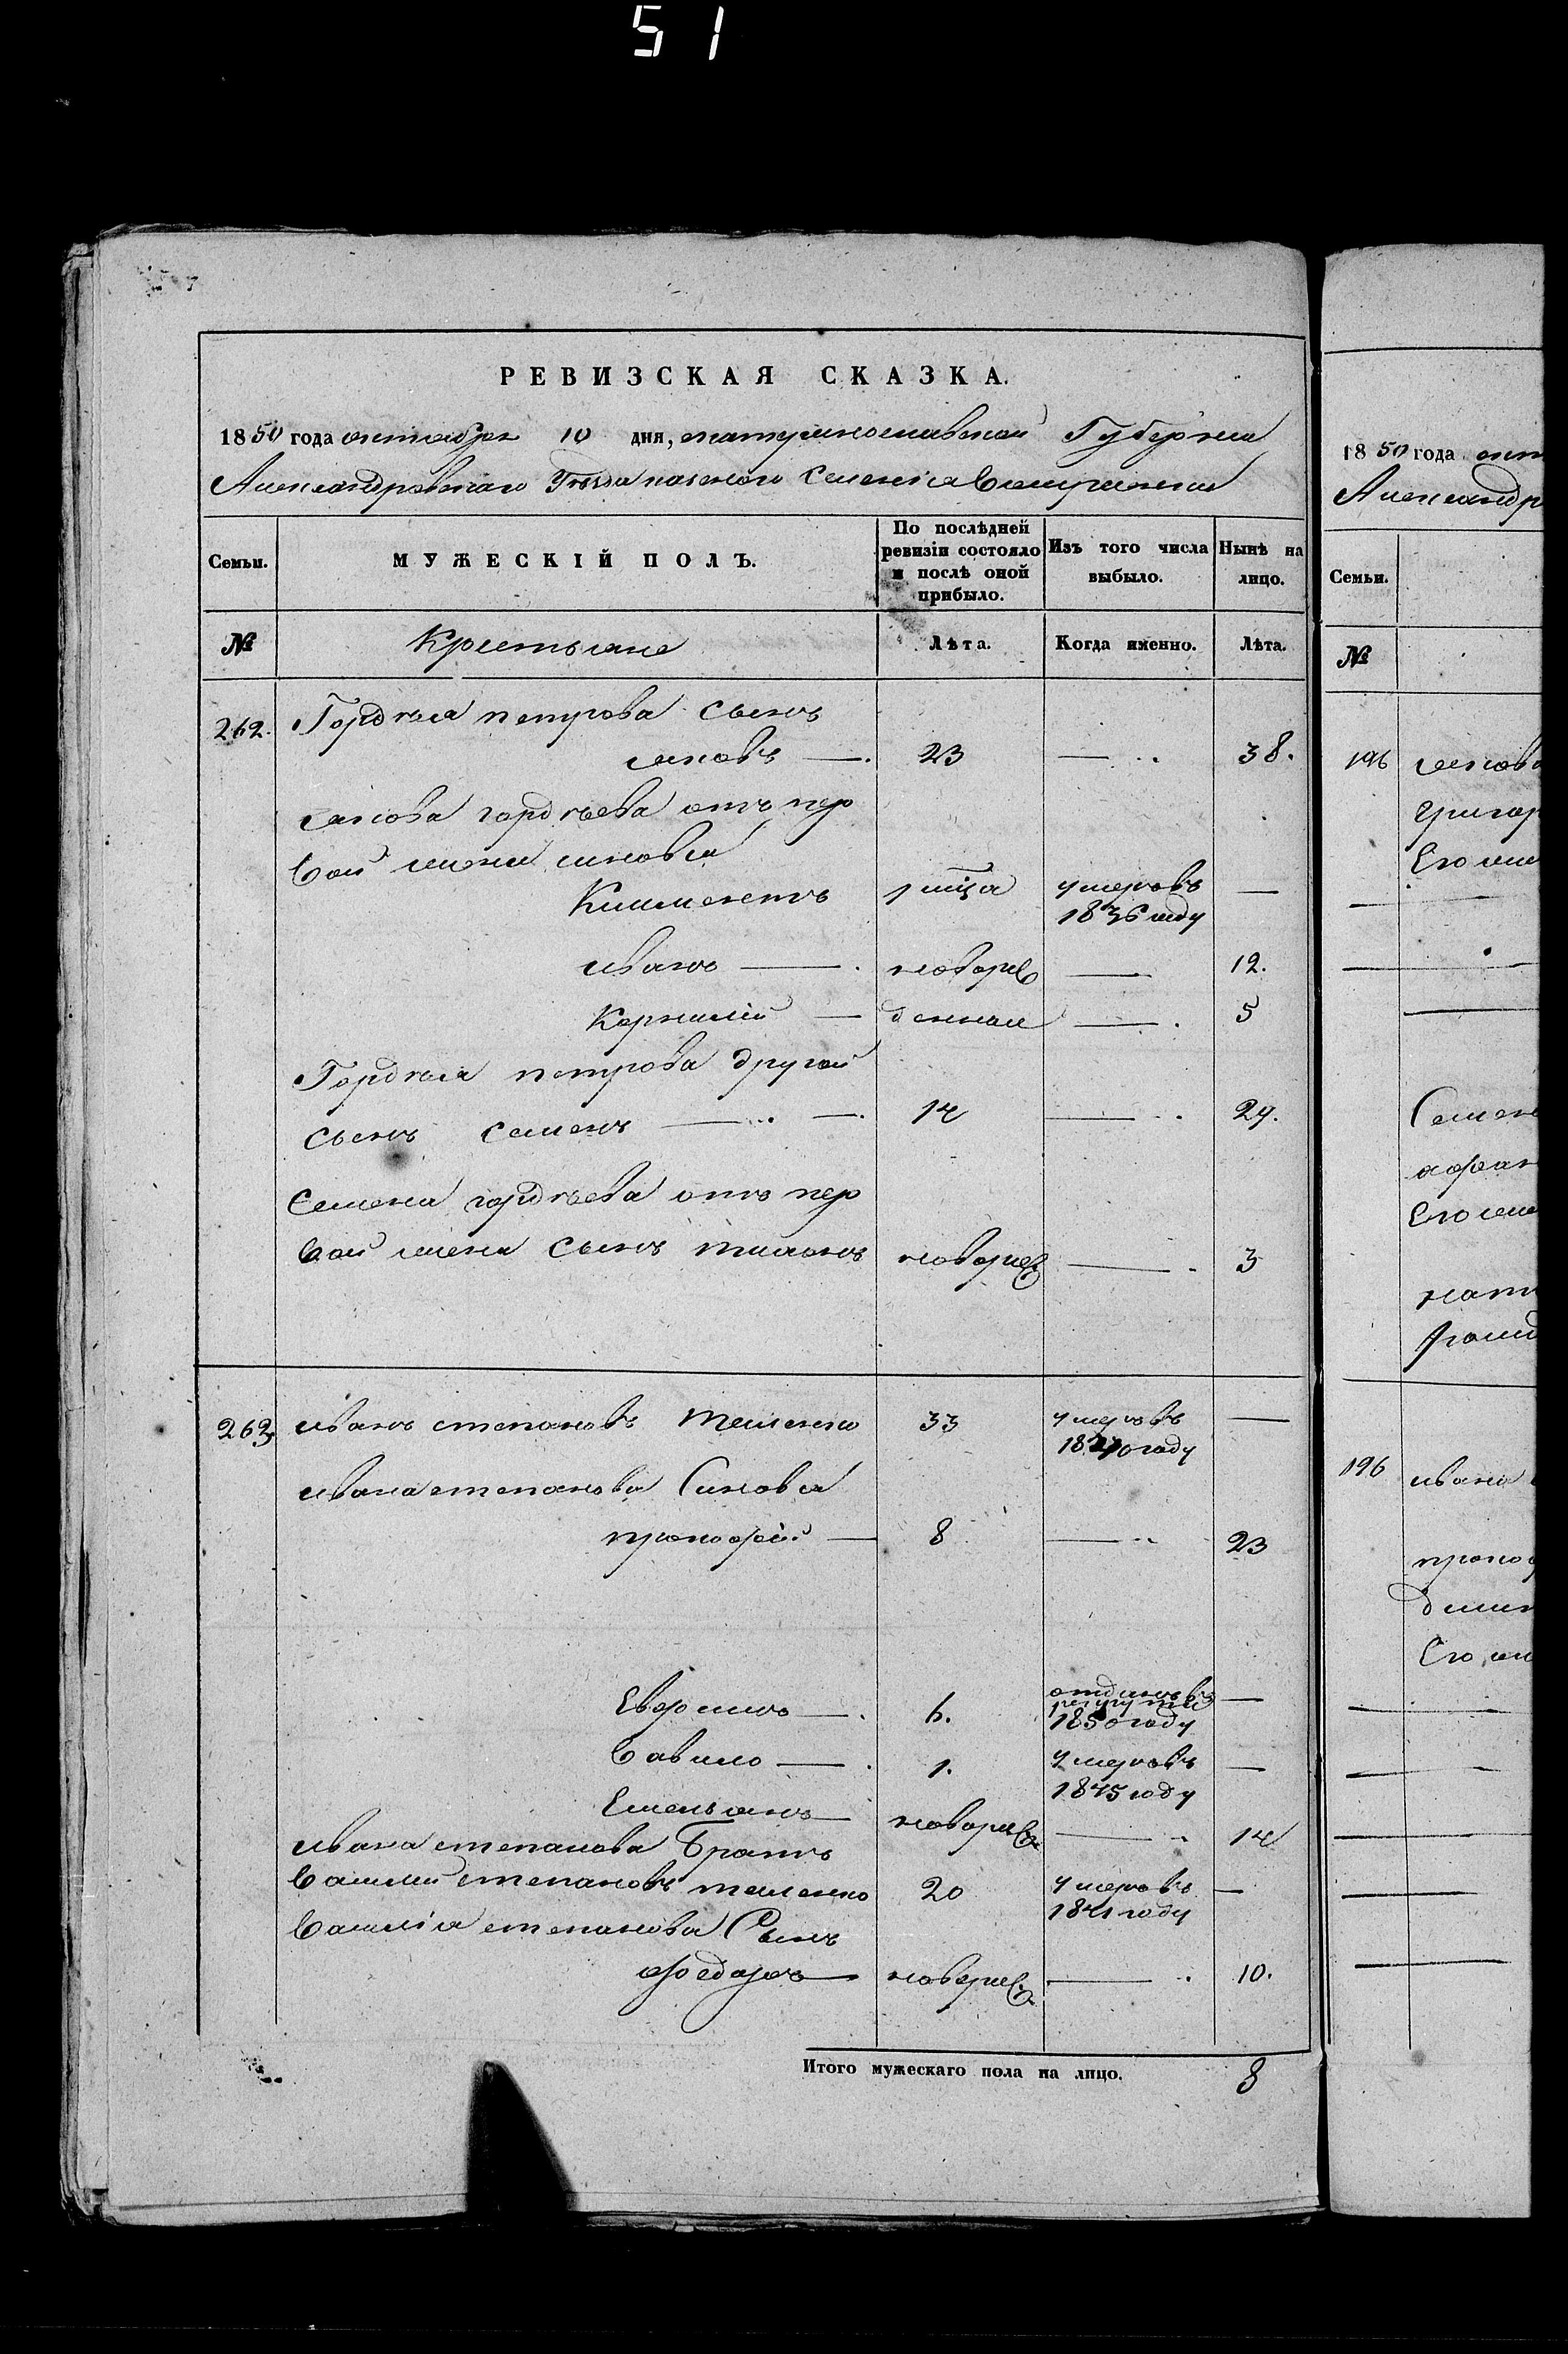 51
РЕВИЗСКАЯ СКАЗКА.
1850 года октября 10 дня, екатеринославской Губернии
Александровскаго Уезда казеного Селения
Семьи.
МУЖЕСКІЙ ПОЛЪ.
По послѣдней ревизіи состояло и послѣ оной прибыло.
Изъ того числа выбыло.
Нынѣ на лицо.
№
Крестьяне
Лѣта.
Когда именно.
Лѣта.
262. Гордѣя петрова сынъ
яковъ — 23 — 38.
якова гордѣева отъ пер
вой жены синовья
Климентъ 1 мца умеръ въ —
1836 году
иванъ — новорж — 12.
Корнилій — деннии — 5
Гордѣя петрова другой
сынъ семенъ — 14 — 29.
Семена гордѣева отъ пер
вой жены сынъ тихонъ новорже — 3
263 иванъ степановъ тещенко 33 умеръ въ —
1840 году
ивана степанова Синовья
прокофій — 8 — 23
Евфимъ — 6. отданъ въ —
рекруты
1850 году
Савило — 1. умеръ въ —
1845 году
Емельянъ — новорж — 14
ивана степанова Братъ
василий степановъ тещенко 20 умеръ въ —
1841 году
василія степанова Сынъ
федоръ — новорж — 10.
Итого мужескаго пола на лицо. 8
1850 года окт
Александр
Семьи.
№
196 якова
григор
Его
Семен
Его
196 ивана
прокоф
Его